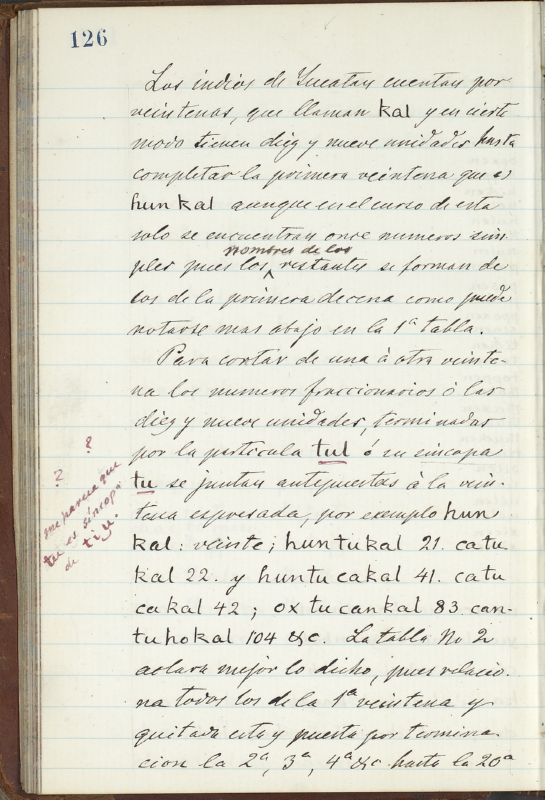 126
Los indios de Yucatan cuentan por
veintenas, que llaman kal y en cierto
modo tienen diez y nueve unidades hasta
completar la primera veintena que es
hun kal aunque en el curso de esta
solo se encuentran once numeros sim
nombres de los
ples pues los restantes se forman de
los de la primera decena como puede
notarse mas abajo en la 1ª tabla.
Para contar de una á otra veinte-
na los numeros fraccionarios ó las
diez y nueve unidades, terminadas
por la particula tul ó su sincopa
tu se juntan antepuestas á la vein-
tena espresada, por exemplo hun
kal: veinte; huntukal 21. catu
kal 22. y huntu cakal 41. catu
cakal 42; ox tu cankal 83. can-
tuhokal 104 &c. La tabla No 2
aclara mejor lo dicho, pues relacio-
na todos los de la 1ª veintena y
quitada esta y puesta por termina-
cion la 2ª, 3ª, 4ª &c hasta la 20ª
? ?
me parece que
tu es síncopa
de